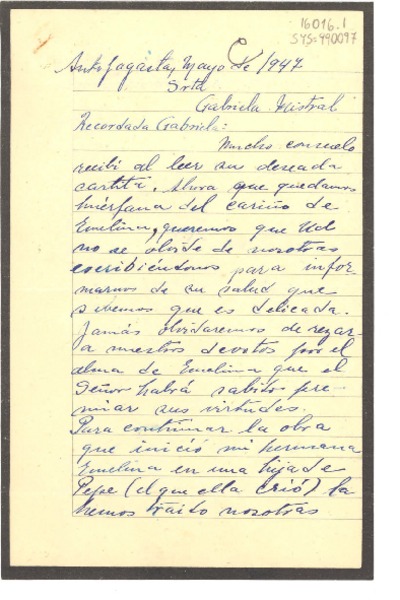 16016.1
SYS=990097
Antofagasta, Mayo de 1947
Srta
Gabriela Mistral
Recordada Gabriela:
Mucho consuelo
recibí al leer su deseada
cartita. Ahora que quedamos
huérfana del cariño de
Emelina, queremos que Ud
no se olvide de nosotras
escribiéndonos para infor-
marnos de su salud que
sabemos que es delicada.
Jamás olvidaremos de rezar
a nuestros devotos por el
alma de Emelina que el
Señor habrá sabido pre-
miar sus virtudes.
Para continuar la obra
que inició mi hermana
Emelina en una hija de
Pepe (el que ella crió) la
hemos traido nosotras